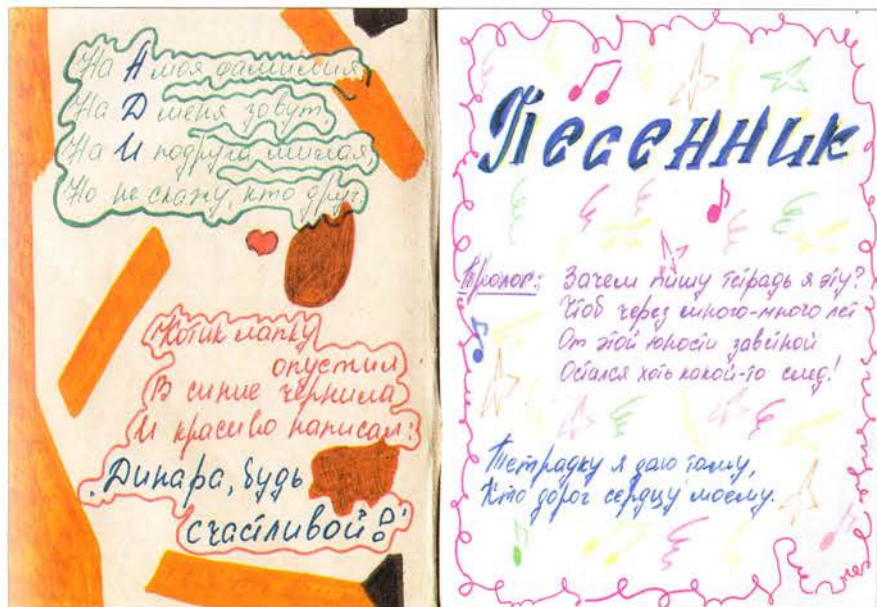 На А моя фамилия,
На Д меня зовут,
На И подруга милая,
Но не скажу, кто друг.
Котик лапку
опустил
В синие чернила
И красиво написал:
„Динара, будь
счастливой!"
Песенник
Пролог: Зачем пишу тетрадь я эту?
Чтоб через много-много лет
От этой юности заветной
Остался хоть какой-то след!
Тетрадку я даю тому,
Кто дорог сердцу моему.